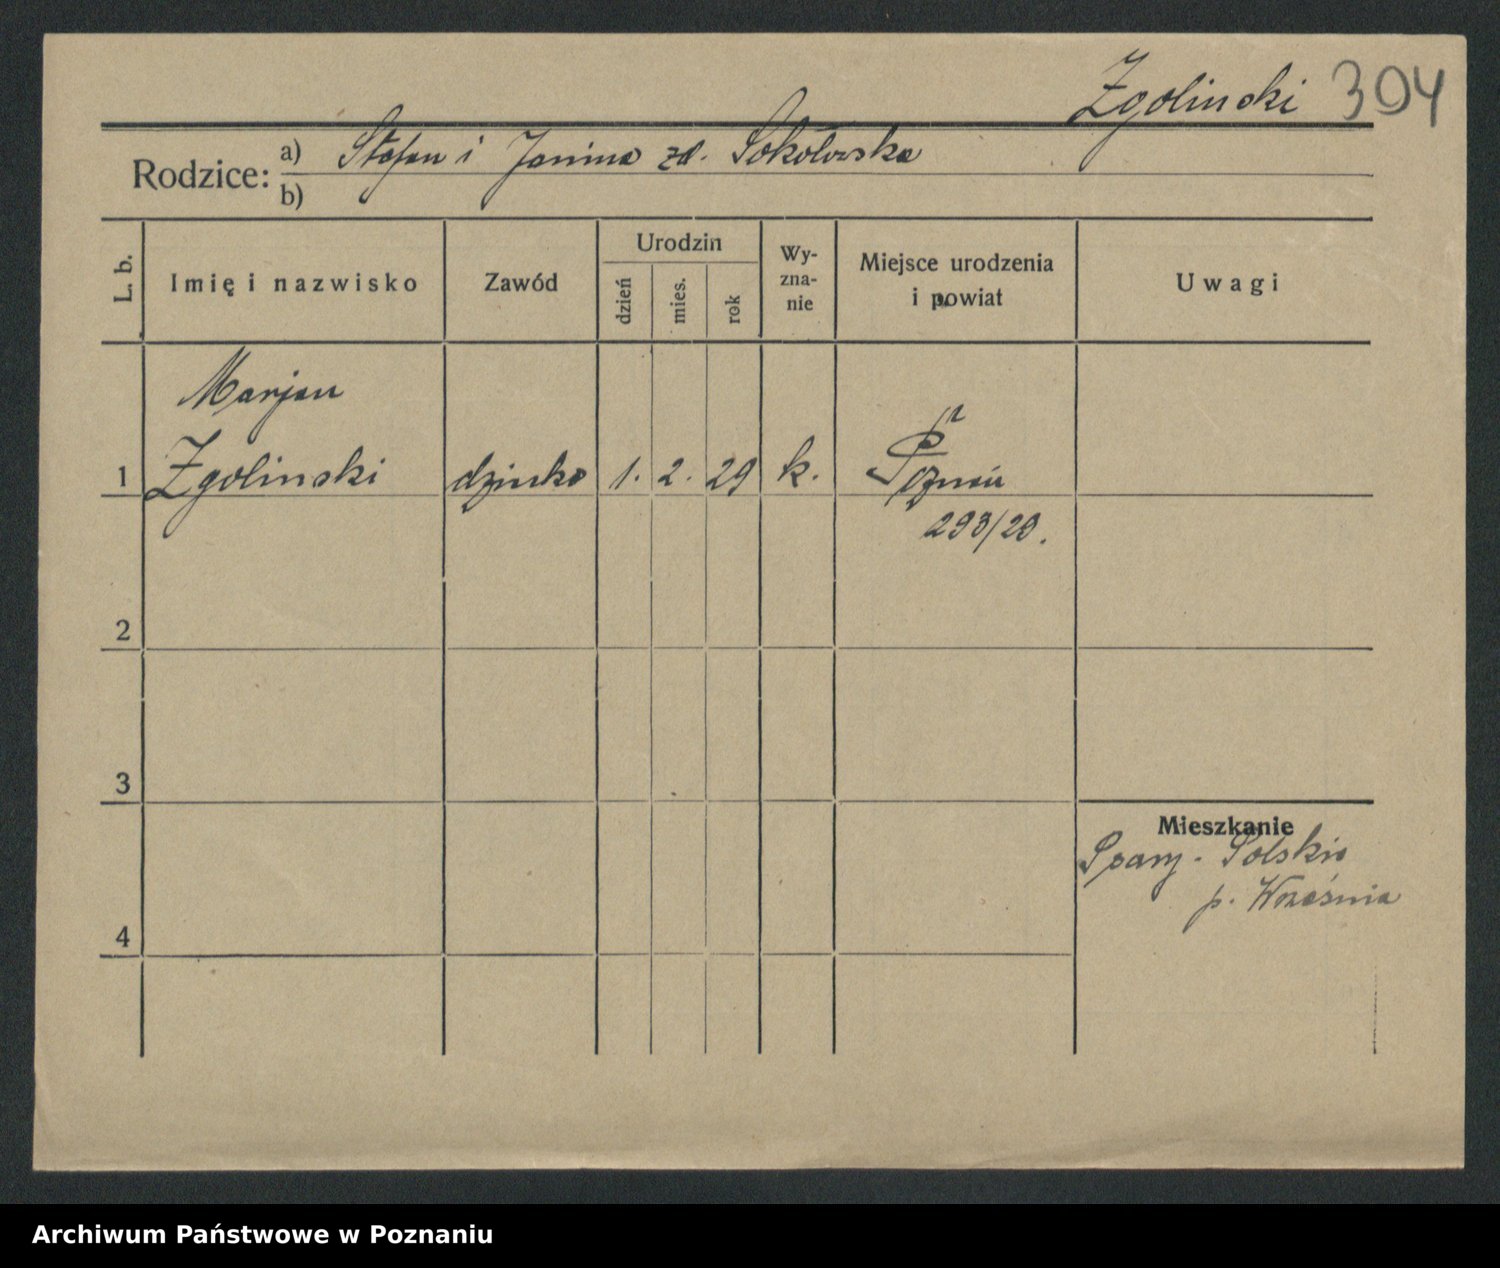 Zgolinski 394
Rodzice: a) Stefan i Janina zd. Sokołowska
b)
L. b. Imię i nazwisko Zawód Urodzin dzień mies. rok Wy-zna-nie Miejsce urodzenia i powiat Uwagi
Marjan
1 Zgolinski dziecko 1. 2. 29 k. Poznań
293/29.
2
3
Mieszkanie
Polskie
p. Września
4
Archiwum Państwowe w Poznaniu